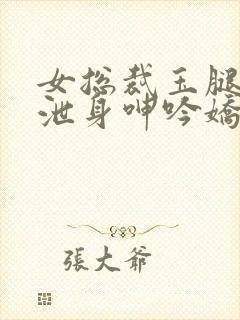 女总裁玉腿
泄身呻吟嬌
張大爷